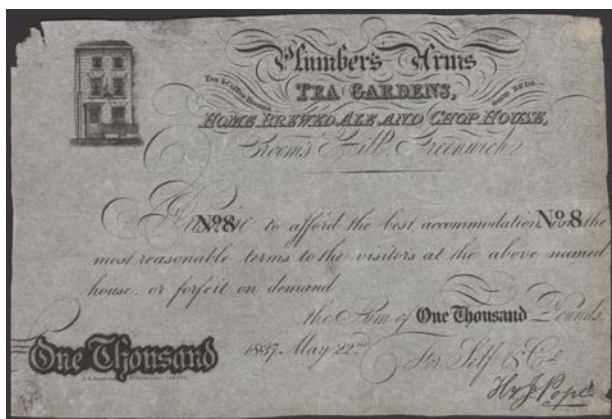 Plumber's Arms
Tea & Coffee Rooms
TEA GARDENS,
GOOD BEDS
HOME BREWED ALE AND CHOP HOUSE,
Croom's Hill Greenwich.
I Promise to afford the best accommodation on the
No 8 No 8
most reasonable terms to the visitors at the above named
house: or forfeit on demand
the Sum of One Thousand Pounds
One Thousand
1837. May 22nd
For Self & Co
Hy. J. Pope